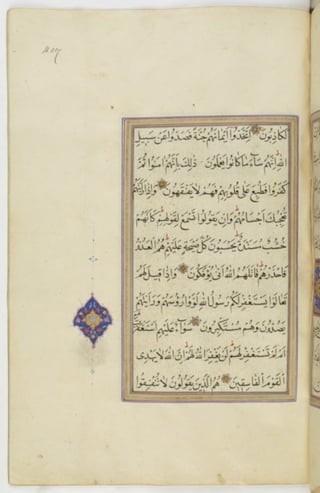 ٤٥٧
لَكَاذِبُونَ اتَّخَذُوا أَيْمَانَهُمْ جُنَّةً فَصَدُّوا عَنْ سَبِيلِ
اللهِ إِنَّهُمْ سَاءَ مَا كَانُوا يَعْمَلُونَ ذَلِكَ بِأَنَّهُمْ آمَنُوا ثُمَّ
كَفَرُوا فَطُبِعَ عَلَى قُلُوبِهِمْ فَهُمْ لَا يَفْقَهُونَ وَإِذَا رَأَيْتَهُمْ
تُعْجِبُكَ أَجْسَامُهُمْ وَإِنْ يَقُولُوا تَسْمَعْ لِقَوْلِهِمْ كَأَنَّهُمْ
خُشُبٌ مُسَنَّدَةٌ يَحْسَبُونَ كُلَّ صَيْحَةٍ عَلَيْهِمْ هُمُ الْعَدُوُّ
فَاحْذَرْهُمْ قَاتَلَهُمُ اللهُ أَنَّى يُؤْفَكُونَ وَإِذَا قِيلَ لَهُمْ
تَعَالَوْا يَسْتَغْفِرْ لَكُمْ رَسُولُ اللهِ لَوَّوْا رُءُوسَهُمْ وَرَأَيْتَهُمْ
يَصُدُّونَ وَهُمْ مُسْتَكْبِرُونَ سَوَاءٌ عَلَيْهِمْ أَسْتَغْفَرْتَ
أَمْ لَمْ تَسْتَغْفِرْ لَهُمْ لَنْ يَغْفِرَ اللهُ لَهُمْ إِنَّ اللهَ لَا يَهْدِي
الْقَوْمَ الْفَاسِقِينَ هُمُ الَّذِينَ يَقُولُونَ لَا تُنْفِقُوا